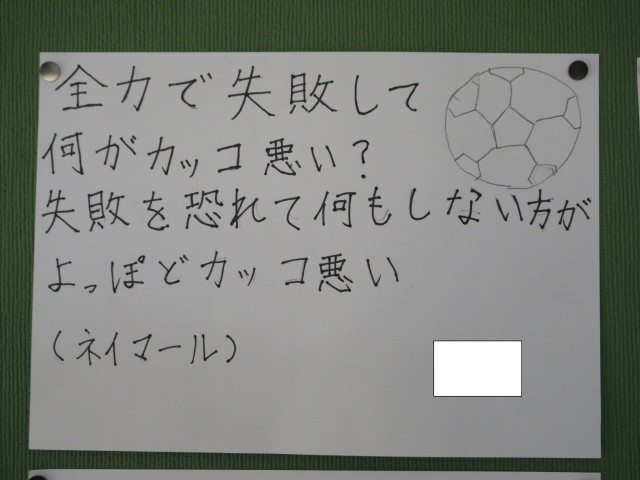 全力で失敗して
何がカッコ悪い？
失敗を恐れて何もしない方が
よっぽどカッコ悪い
（ネイマール）